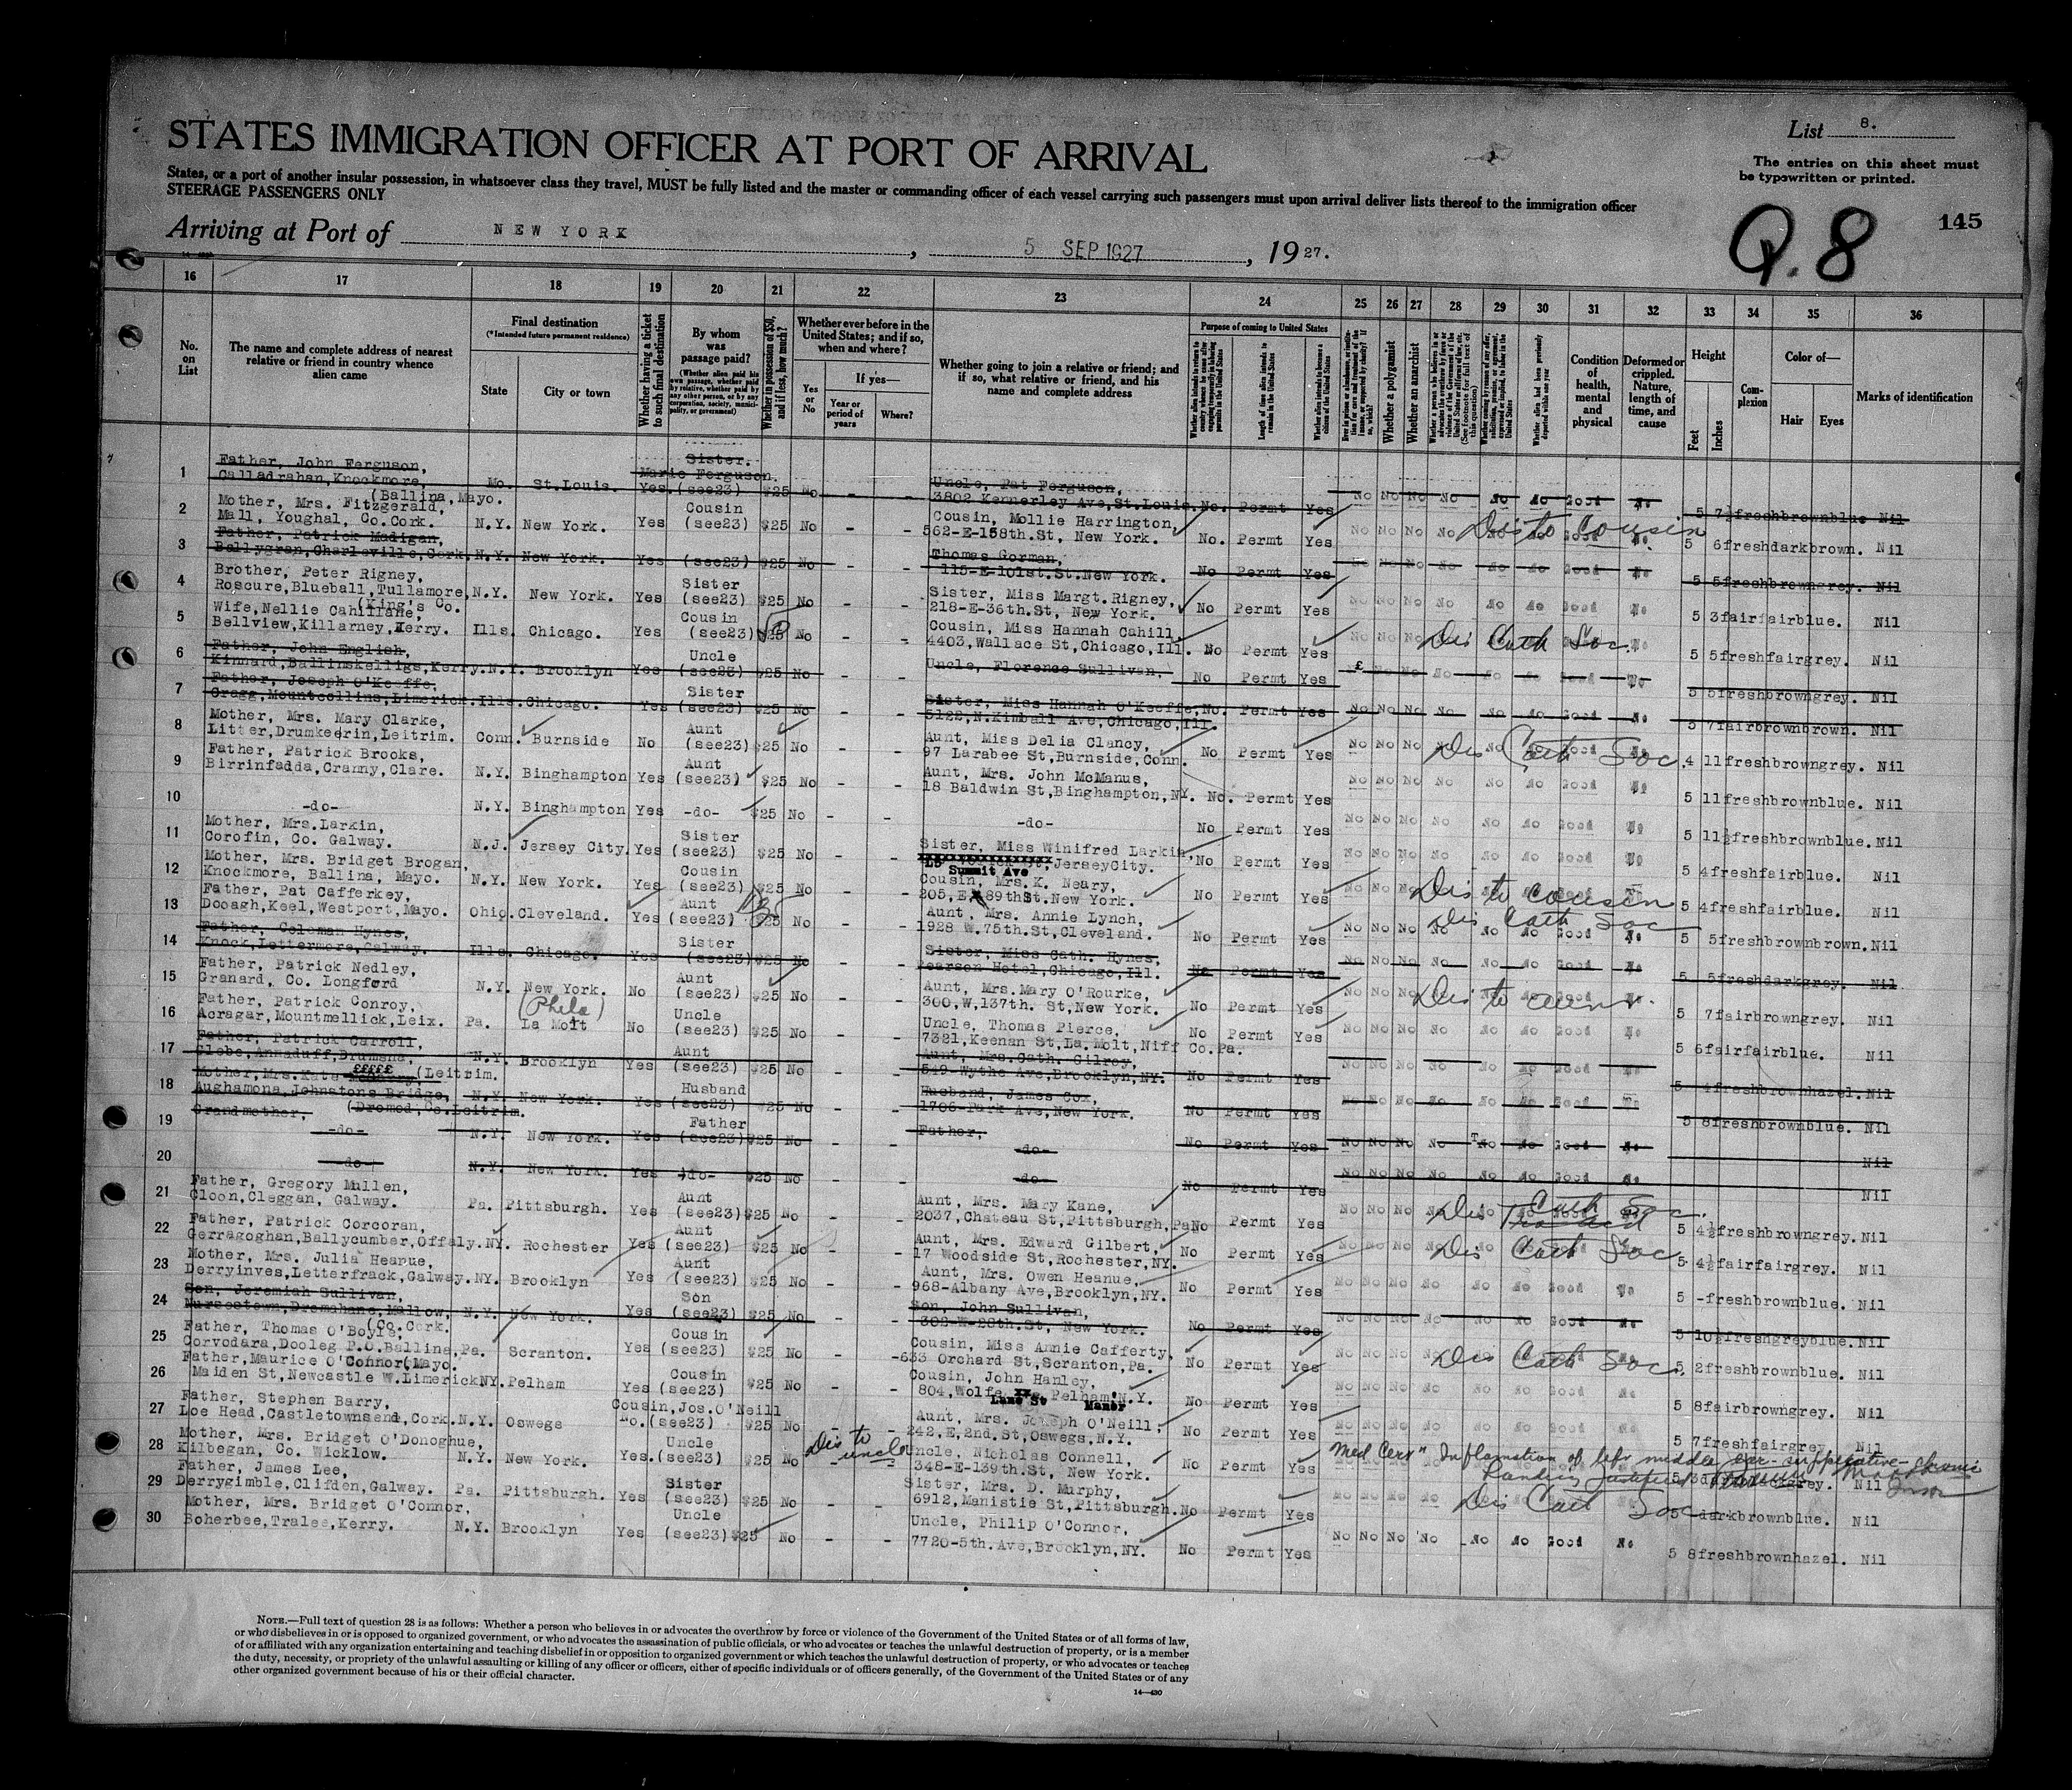 List 8.
The entries on this sheet must
be typewritten or printed.
STATES IMMIGRATION OFFICER AT PORT OF ARRIVAL
States, or a port of another insular possession, in whatsoever class they travel, MUST be fully listed and the master or commanding officer of each vessel carrying such passengers must upon arrival deliver lists thereof to the immigration officer
STEERAGE PASSENGERS ONLY
Q.8 145
Arriving at Port of NEW YORK, 5 SEP 1927, 1927.
16 17 18 19 20 21 22 23 24 25 26 27 28 29 30 31 32 33 34 35 36
No. on List
The name and complete address of nearest relative or friend in country whence alien came
Final destination
(*Intended future permanent residence)
State City or town
Whether having a ticket to such final destination
By whom was passage paid?
(Whether alien paid his own passage, whether paid by relative, whether paid by any other person, or by any corporation, society, municipality, or government)
Whether in possession of $50, and if less, how much?
Whether ever before in the United States; and if so, when and where?
Yes or No
If yes—
Year or period of years Where?
Whether going to join a relative or friend; and if so, what relative or friend, and his name and complete address
Purpose of coming to United States
Length of time alien intends to remain in the United States
Whether alien intends to become a citizen of the United States
Whether a polygamist
Whether an anarchist
Condition of health, mental and physical
Deformed or crippled. Nature, length of time, and cause
Height
Feet Inches
Complexion
Color of—
Hair Eyes
Marks of identification
1 Father, John Ferguson, Sister. Marie Ferguson.
Calladrahan, Knockmore, (Ballina, Mayo. Mo. St.Louis. Yes. (see23) $25 No - - Uncle, Pat Ferguson, 3802 Kennerley Ave, St.Louis. No. Permt Yes No No No No No No Good No 5 7½ fresh brown blue Nil
2 Mother, Mrs. Fitzgerald,
Mall, Youghal, Co.Cork. N.Y. New York. Yes Cousin (see23) $25 No - - Cousin, Mollie Harrington, 562-E-158th.St, New York. No. Permt Yes No No No No No No Good No Dis to Cousin 5 6 fresh dark brown. Nil
3 Father, Patrick Madigan,
Ballygran, Charleville, Cork. N.Y. New York. Yes (see23) $25 No - - Thomas Gorman, 115-E-101st.St.New York. No Permt Yes No No No No No No Good No 5 5 fresh brown grey. Nil
4 Brother, Peter Rigney,
Roscure, Blueball, Tullamore, (King's Co. N.Y. New York. Yes Sister (see23) $25 No - - Sister, Miss Margt. Rigney, 218-E-36th.St, New York. No Permt Yes No No No No No No Good No 5 3 fair fair blue. Nil
5 Wife, Nellie Cahillane,
Bellview, Killarney, Kerry. Ills. Chicago. Yes Cousin (see23) $25 50 No - - Cousin, Miss Hannah Cahill, 4403, Wallace St, Chicago, Ill. No Permt Yes No No No No No No Good No Dis Cath Soc. 5 5 fresh fair grey. Nil
6 Father, John English,
Kinnard, Ballinskelligs, Kerry. N.Y. Brooklyn Yes Uncle (see23) $25 No - - Uncle, Florence Sullivan, No Permt Yes £ No No No No No Good No 5 5 fresh brown grey. Nil
7 Father, Joseph O'Keeffe,
Cragg, Mountcollins, Limerick. Ills. Chicago. Yes Sister (see23) $25 No - - Sister, Miss Hannah O'Keeffe, 5122, N.Kimball Ave, Chicago, Ill. No. Permt Yes No No No No No No Good No 5 7 fair brown brown. Nil
8 Mother, Mrs. Mary Clarke,
Litter, Drumkeerin, Leitrim. Conn. Burnside No Aunt (see23) $25 No - - Aunt, Miss Delia Clancy, 97 Larabee St, Burnside, Conn. No Permt Yes No No No No No No Good No Dis Cath Soc. 4 11 fresh brown grey. Nil
9 Father, Patrick Brooks,
Birrinfadda, Cranny, Clare. N.Y. Binghampton Yes Aunt (see23) $25 No - - Aunt, Mrs. John McManus, 18 Baldwin St, Binghampton, NY. No. Permt Yes No No No No No No Good No 5 11 fresh brown blue. Nil
10 -do- N.Y. Binghampton Yes -do- $25 No - - -do- No Permt Yes No No No No No No Good No 5 11½ fresh brown blue. Nil
11 Mother, Mrs.Larkin,
Corofin, Co. Galway. N.J. Jersey City. Yes Sister (see23) $25 No - - Sister, Miss Winifred Larkin, Summit Ave JerseyCity. No Permt Yes No No No No No No Good No 5 4 fresh fair blue. Nil
12 Mother, Mrs. Bridget Brogan,
Knockmore, Ballina, Mayo. N.Y. New York. Yes Cousin (see23) $25 No - - Cousin, Mrs. K. Neary, 205, E 89thSt. New York. No Permt Yes No No No No No No Good No Dis to Cousin 5 4 fresh fair blue. Nil
13 Father, Pat Cafferkey,
Dooagh, Keel, Westport, Mayo. Ohio. Cleveland. Yes Aunt (see23) $25 No - - Aunt, Mrs. Annie Lynch, 1928 W.75th.St, Cleveland. No Permt Yes No No No No No No Good No Dis Cath Soc 5 5 fresh brown brown. Nil
14 Father, Coleman Hynes,
Knock, Lettermore, Galway. Ills. Chicago. Yes Sister (see23) $25 No - - Sister, Miss Cath. Hynes, Pearson Hotel, Chicago, Ill. No Permt Yes No No No No No No Good No 5 5 fresh dark grey. Nil
15 Father, Patrick Nedley,
Granard, Co. Longford N.Y. New York. No Aunt (see23) $25 No - - Aunt, Mrs. Mary O'Rourke, 300, W.137th. St, New York. No Permt Yes No No No No No No Good No Dis to aunt. 5 7 fair brown grey. Nil
16 Father, Patrick Conroy,
Acragar, Mountmellick, Leix. Pa. (Phila) La Mott No Uncle (see23) $25 No - - Uncle, Thomas Pierce, 7321, Keenan St, La.Molt, Niff Co.Pa. No Permt Yes No No No No No No Good No 5 6 fair fair blue. Nil
17 Father, Patrick Carroll,
Glebe, Annaduff, Drumsna, (Leitrim. N.Y. Brooklyn Yes Aunt (see23) $25 No - - Aunt, Mrs. Cath. Gilroy, 549 Wythe Ave, Brooklyn, NY. No Permt Yes No No No No No No Good No 5 4 fresh brown hazel. Nil
18 Mother, Mrs. Kate £££££
Aughamona, Johnstons Bridge, (Dromod, Co.Leitrim. N.Y. New York. Yes Husband (see23) $25 No - - Husband, James Cox, 1706-Park Ave, New York. No Permt Yes No No No No No No Good No 5 8 fresh brown blue. Nil
19 Grandmother,
-do- N.Y. New York. Yes Father (see23) $25 No - - Father, -do- No Permt Yes No No No No No No Good No Nil
20 -do- N.Y. New York. Yes -do- $25 No - - -do- No Permt Yes No No No No No No Good No Nil
21 Father, Gregory Mullen,
Cloon, Cleggan, Galway. Pa. Pittsburgh. Yes Aunt (see23) $25 No - - Aunt, Mrs. Mary Kane, 2037, Chateau St, Pittsburgh, Pa No Permt Yes No No No No No No Good No Dis Cath Soc. 5 4½ fresh brown grey. Nil
22 Father, Patrick Corcoran,
Gerragoghan, Ballycumber, Offaly. NY. Rochester Yes Aunt (see23) $25 No - - Aunt, Mrs. Edward Gilbert, 17 Woodside St, Rochester, NY. No Permt Yes No No No No No No Good No Dis Cath Soc 5 4½ fair fair grey. Nil
23 Mother, Mrs. Julia Heanue,
Derryinves, Letterfrack, Galway. NY. Brooklyn Yes Aunt (see23) $25 No - - Aunt, Mrs. Owen Heanue, 968-Albany Ave, Brooklyn, NY. No Permt Yes No No No No No No Good No 5 - fresh brown blue. Nil
24 Son, Jeremiah Sullivan,
Nursestown, Dromahane, Mallow, (Co.Cork. N.Y. New York. Yes Son (see23) $25 No - - Son, John Sullivan, 302-W-28th.St, New York. No Permt Yes No No No No No No Good No 5 10½ fresh grey blue. Nil
25 Father, Thomas O'Boyle,
Corvodara, Dooleg P.O. Ballina, (Mayo. Pa. Scranton. Yes Cousin (see23) $25 No - - Cousin, Miss Annie Cafferty, 633 Orchard St, Scranton, Pa. No Permt Yes No No No No No No Good No Dis Cath Soc. 5 2 fresh brown blue. Nil
26 Father, Maurice O'Connor,
Maiden St, Newcastle W. Limerick NY. Pelham Yes Cousin (see23) $25 No - - Cousin, John Hanley, 804, Wolfe Lane St Pelham Manor N.Y. No Permt Yes No No No No No No Good No 5 8 fair brown grey. Nil
27 Father, Stephen Barry,
Loe Head, Castletownsend, Cork. N.Y. Oswego No. Cousin, Jos. O'Neill (see23) $25 No - - Aunt, Mrs. Joseph O'Neill, 242, E, 2nd, St, Oswego, N.Y. No Permt Yes No No No No No No Good No 5 7 fresh fair grey Nil
28 Mother, Mrs. Bridget O'Donoghue,
Kilbegan, Co. Wicklow. N.Y. New York. Yes. Uncle (see23) $25 No Dis to uncle - - Uncle, Nicholas Connell, 348-E-139th.St, New York. No Permt Yes Med Cert" Inflamation of left middle ear- suppurative- chronic Landing justified 5 3 grey. Nil
29 Father, James Lee,
Derrygimble, Clifden, Galway. Pa. Pittsburgh. Yes Sister (see23) $25 No - - Sister, Mrs. D. Murphy, 6912, Manistie St, Pittsburgh. No Permt Yes No No No No Dis Cath Soc 5 - dark brown blue. Nil
30 Mother, Mrs. Bridget O'Connor,
Boherbee, Tralee, Kerry. N.Y. Brooklyn Yes Uncle (see23) $25 No - - Uncle, Philip O'Connor, 7720-5th.Ave, Brooklyn, NY. No Permt Yes No No No No No No Good No 5 8 fresh brown hazel. Nil
NOTE.—Full text of question 28 is as follows: Whether a person who believes in or advocates the overthrow by force or violence of the Government of the United States or of all forms of law,
or who disbelieves in or is opposed to organized government, or who advocates the assassination of public officials, or who advocates or teaches the unlawful destruction of property, or is a member
of or affiliated with any organization entertaining and teaching disbelief in or opposition to organized government or which teaches the unlawful destruction of property, or who advocates or teaches
the duty, necessity, or propriety of the unlawful assaulting or killing of any officer or officers, either of specific individuals or of officers generally, of the Government of the United States or of any
other organized government because of his or their official character.
14—430